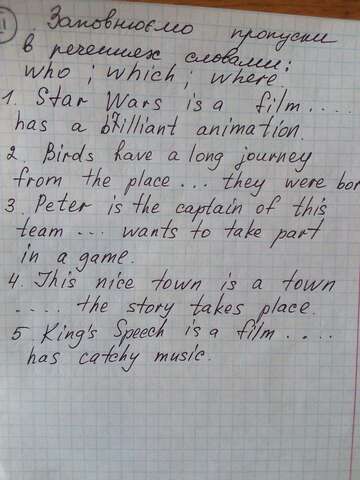 Заповнюємо пропуски
в реченнях словами:
who ; which ; where
1. Star Wars is a film ....
has a brilliant animation.
2. Birds have a long journey
from the place ... they were bor
3. Peter is the captain of this
team ... wants to take part
in a game.
4. This nice town is a town
.... the story takes place.
5 King's Speech is a film ....
has catchy music.